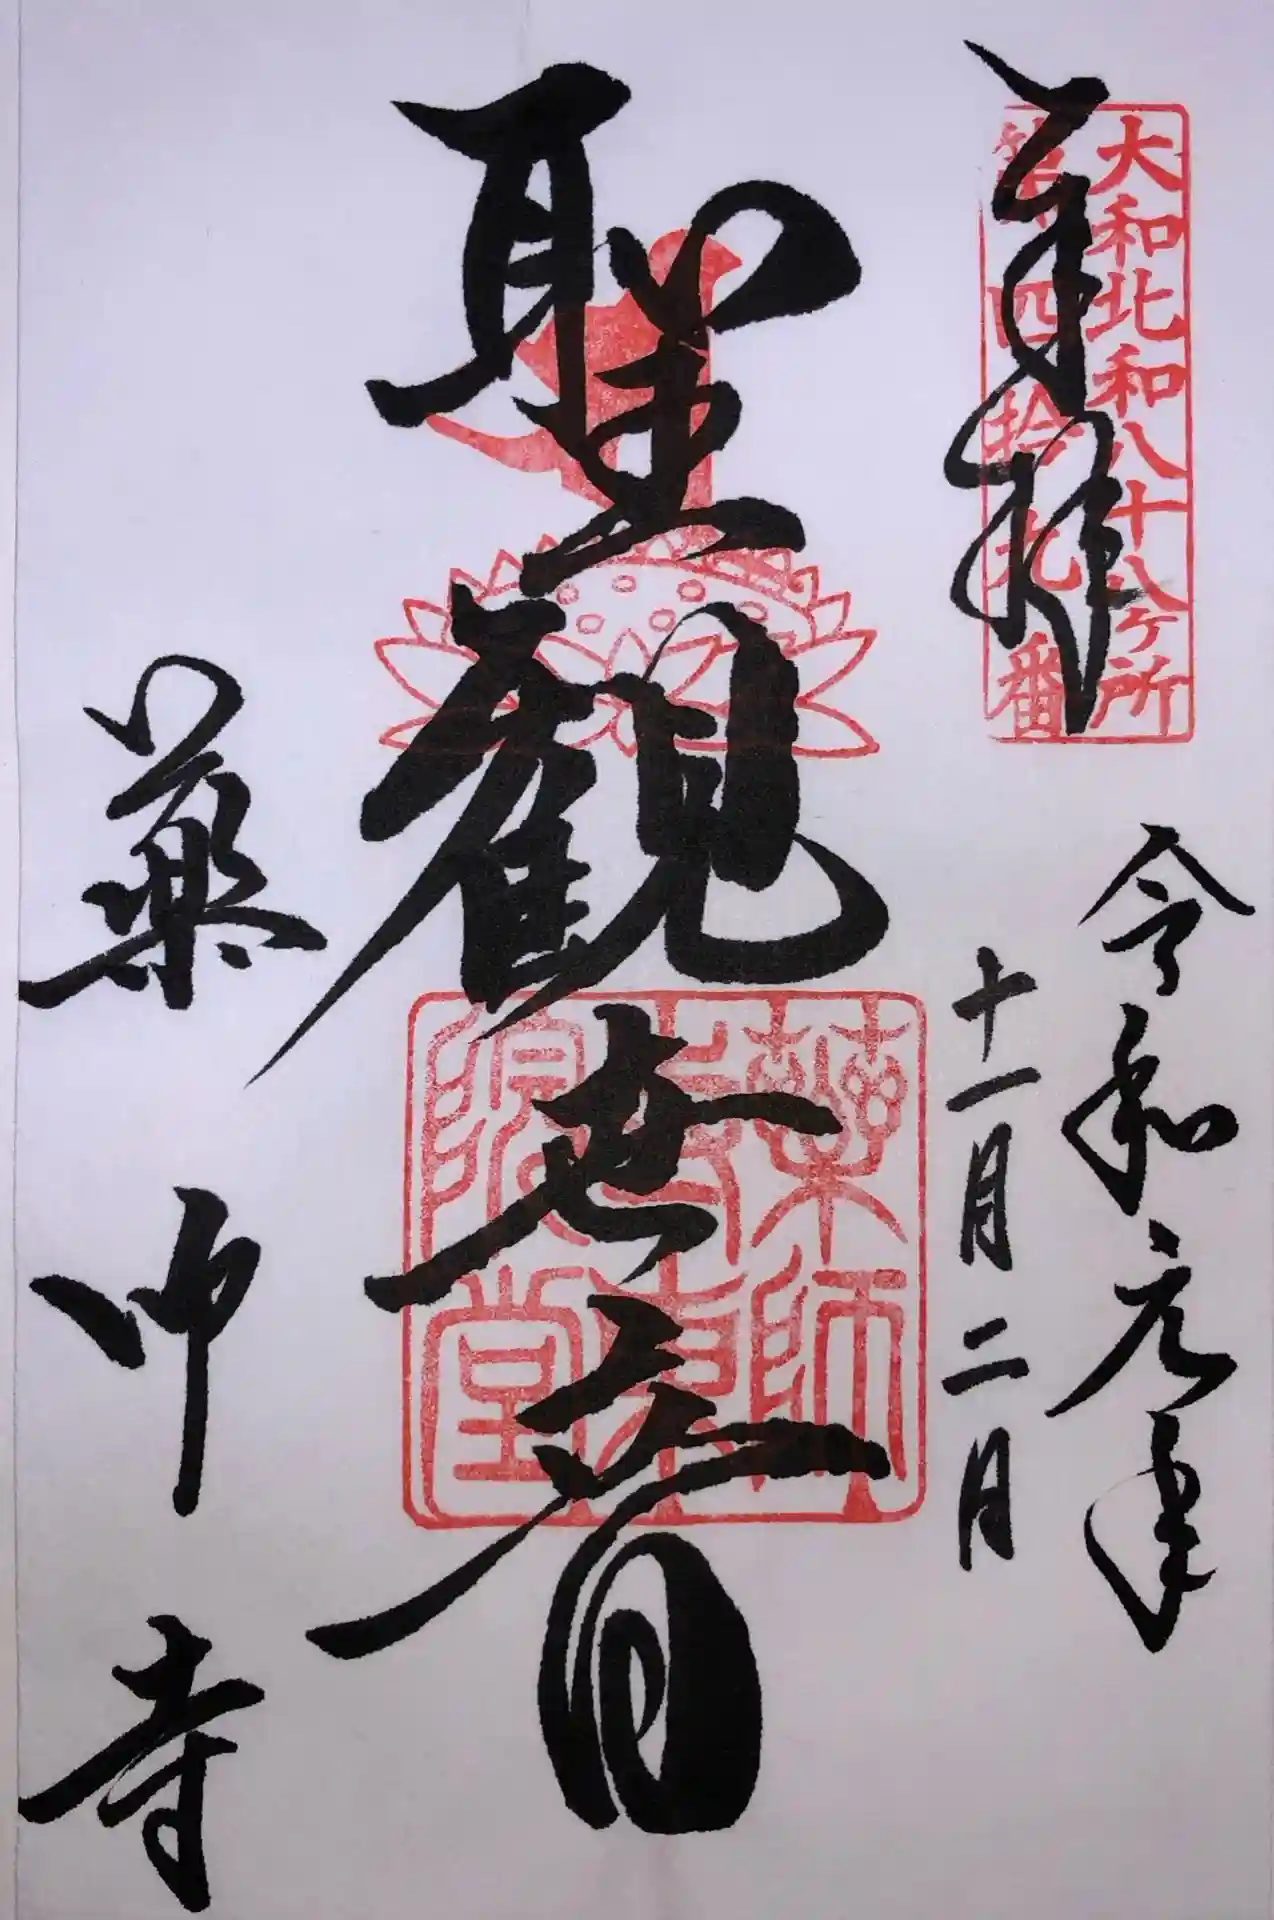 大和北和八十八ヶ所
第四拾九番
奉拝
令和元年
十一月二日
聖観世音
薬師
寺東
院堂
薬師寺